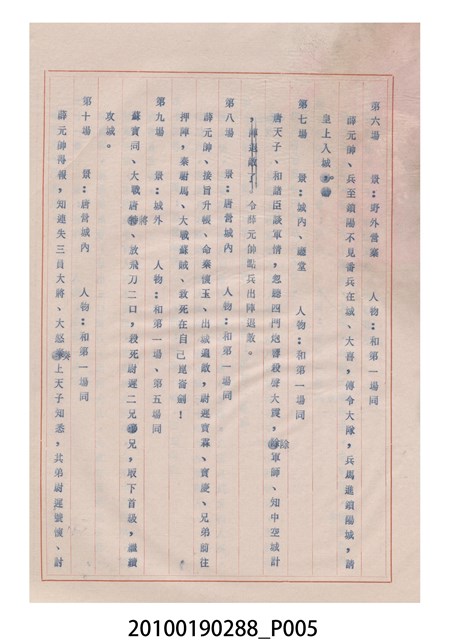 第六場　景：野外營寨　人物：和第一場同
薛元帥、兵至鎖陽不見番兵在城、大喜，傳令大隊，兵馬進鎖陽城，請
皇上入城，
第七場　景：城內、廳堂　人物：和第一場同
唐天子、和諸臣談軍情，忽聽四門炮聲殺聲大震，徐軍師、知中空城計
，令薛元帥點兵出陣退敵。
第八場　景：唐營城內　人物：和第一場同
薛元帥、接旨升帳、命秦懷玉、出城退敵，尉遲寶霖、寶慶、兄弟前往
押陣，秦駙馬、大戰蘇賊、敗死在自己崑崙劍！
第九場　景：城外　人物：和第一場、第五場同
蘇寶同、大戰唐將、放飛刀二口，殺死尉遲二兄弟，取下首級，繼續
攻城。
第十場　景：唐營城內　人物：和第一場同
薛元帥得報，知連失三員大將、大怒，上天子知悉，其弟尉遲號懷、討
20100190288_P005